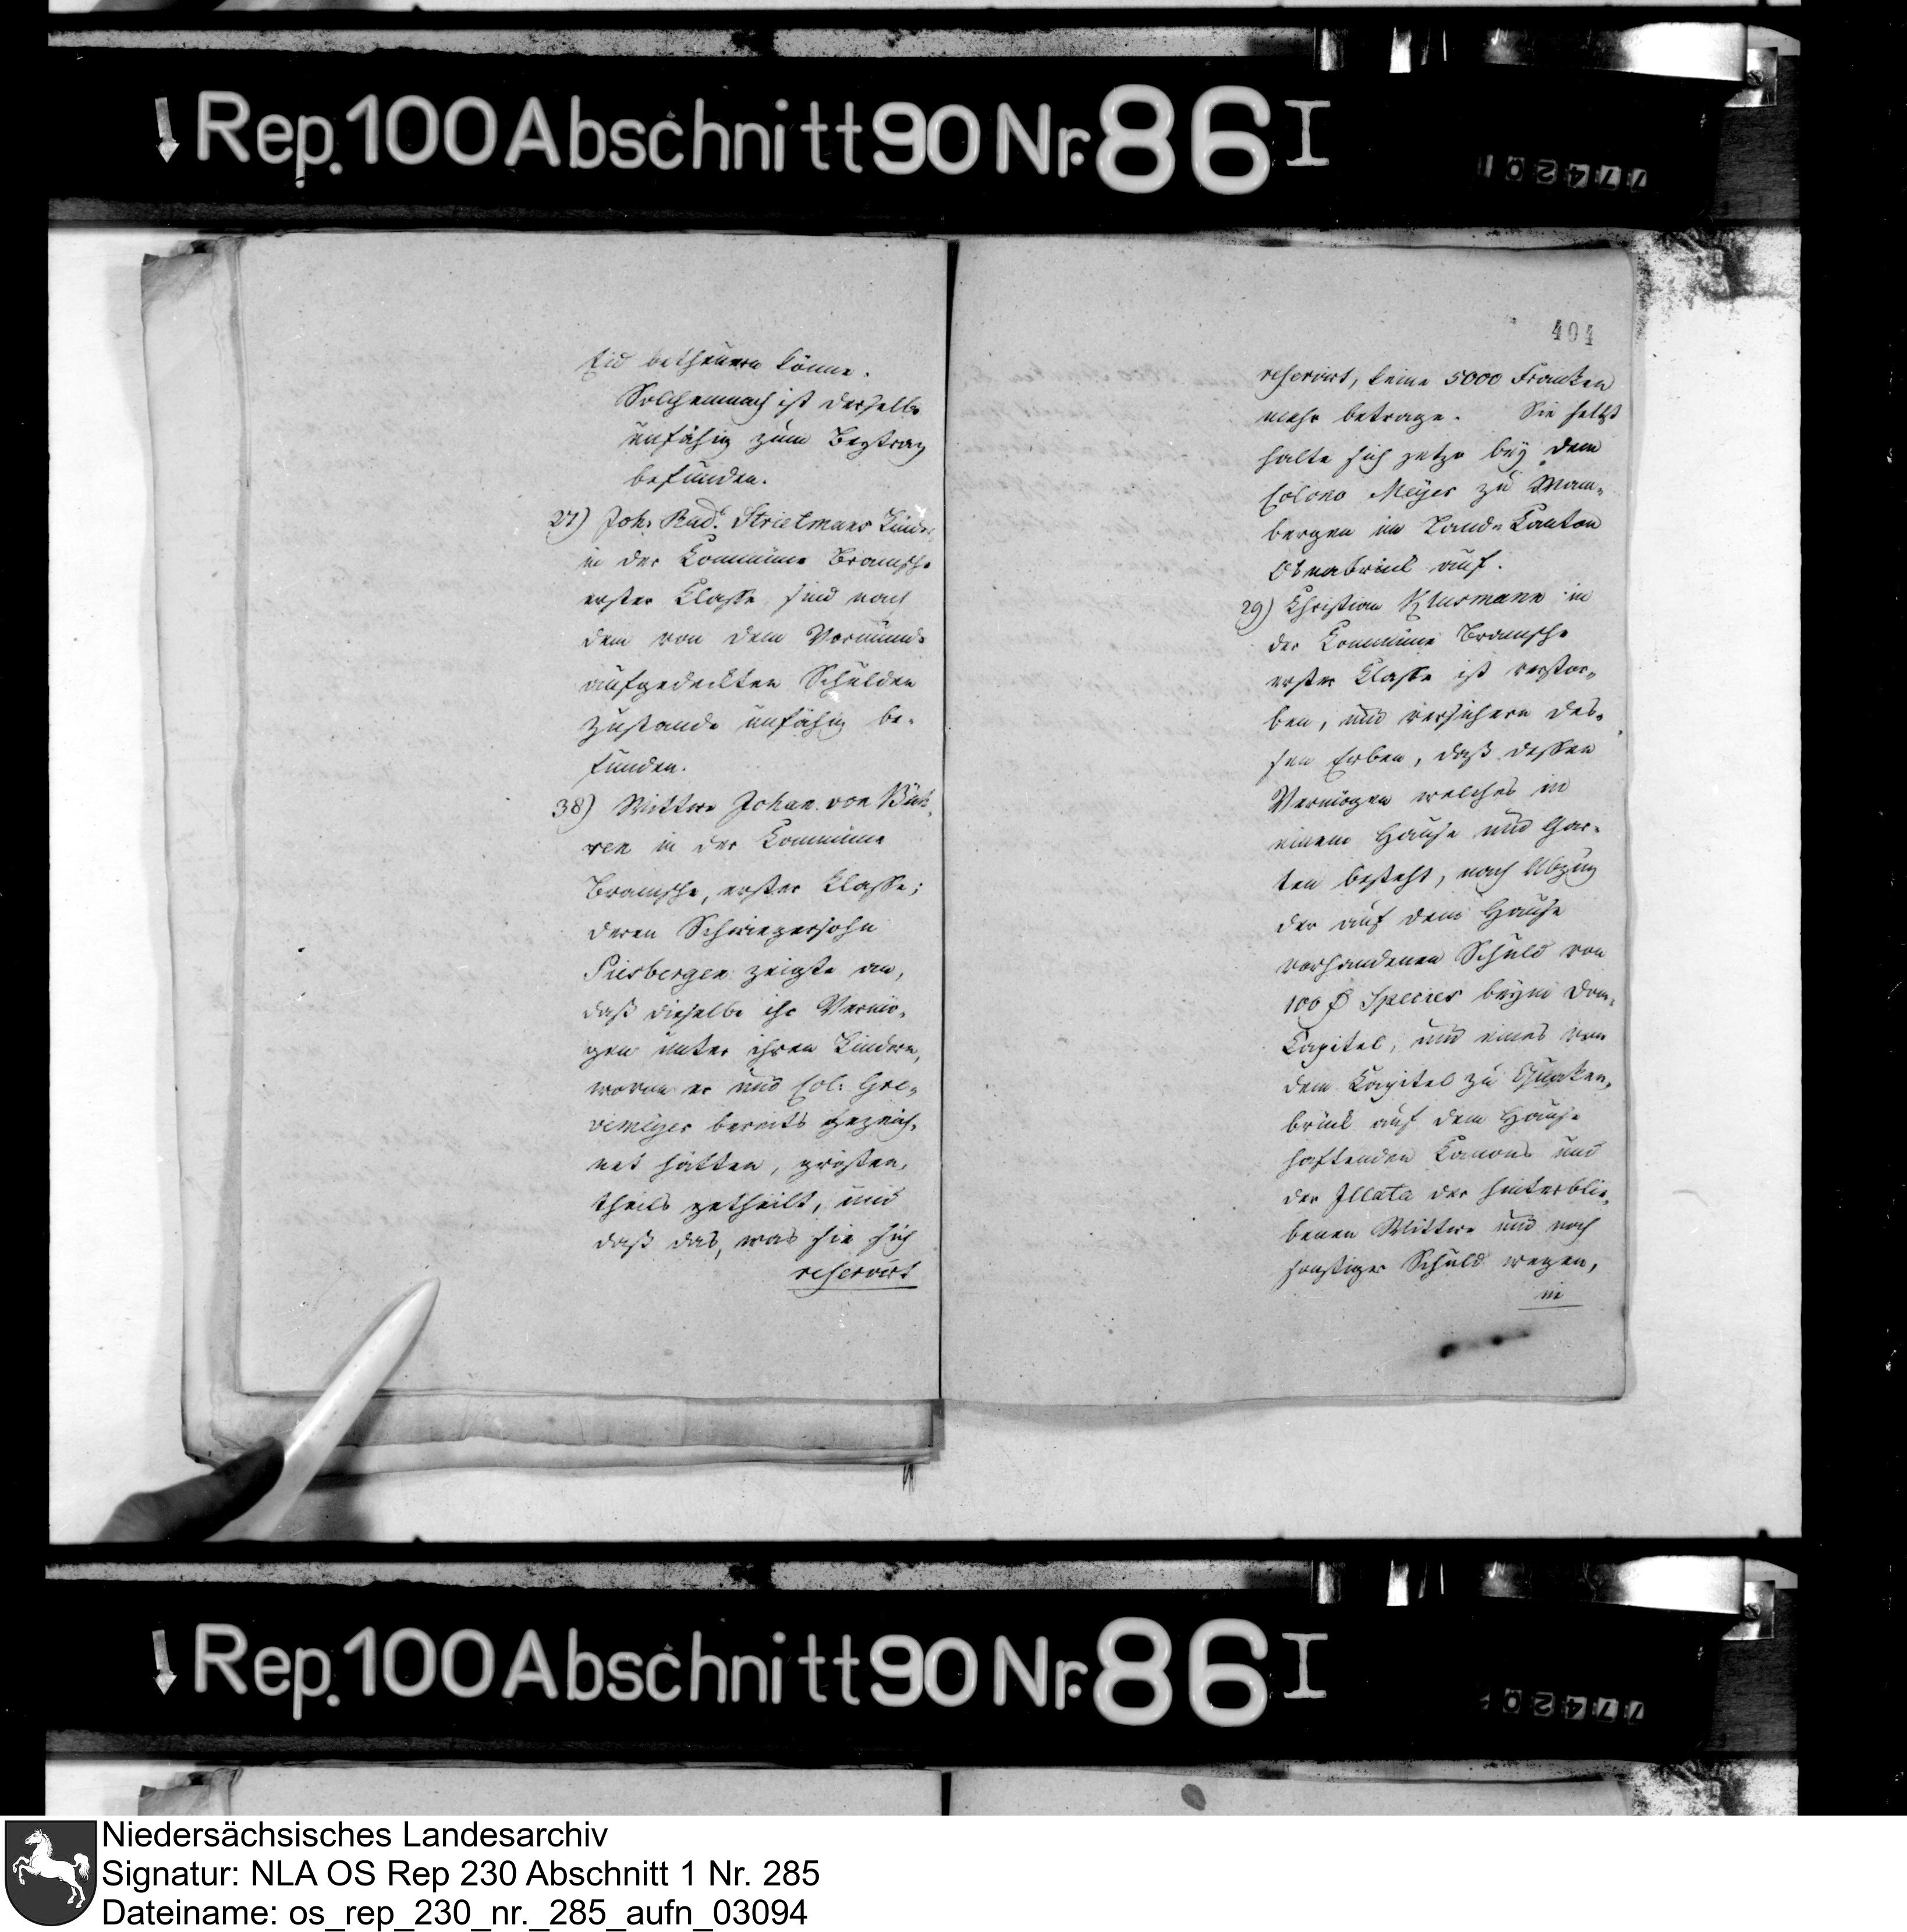 Rep. 100 Abschnitt 90 Nr. 86 I
774201
Eid betheuern könne.
Solchemnach ist derselbe
unfähig zum Beytrag
befunden.
27) Joh. Rud. Strietmans Kinder
in der Commüne Bramsche
erster Classe, sind nach
dem von dem Vormunde
aufgedeckten Schulden
Zustande unfähig be-
funden.
38) Wittwe Johan von Büh-
ren in der Commüne
Bramsche, erster Classe;
deren Schwiegersohn
Piesbergen zeigte an,
daß dieselbe ihr Vermö-
gen unter ihren Kindern,
wovon er und Col. Gre-
vemeyer bereits gezeich-
net hätten, größten-
theils getheilt, und
daß das, was sie sich
reservirt
404
reservirt, keine 5000 Franken
mehr betrage. Sie selbst
halte sich jetzo bey dem
Colono Meyer zu
bergen im Land-Canton
Osnabrück auf.
29) Christian Klusmann in
der Commüne Bramsche
erster Classe ist verstor-
ben, und versichern des-
sen Erben, daß dessen
Vermögen welches in
einem Hause und Gar-
ten besteht, nach Abzug
der auf dem Hause
vorhandenen Schuld von
100 Species beym Dom-
Capitel, und eines von
dem Capitel zu Quaken-
brück auf dem Hause
haftenden Canons und
der Illata der hinterblie-
benen Wittwe und noch
sonstiger Schuld wegen,
in
Rep. 100 Abschnitt 90 Nr. 86 I
77420
Niedersächsisches Landesarchiv
Signatur: NLA OS Rep 230 Abschnitt 1 Nr. 285
Dateiname: os_rep_230_nr._285_aufn_03094